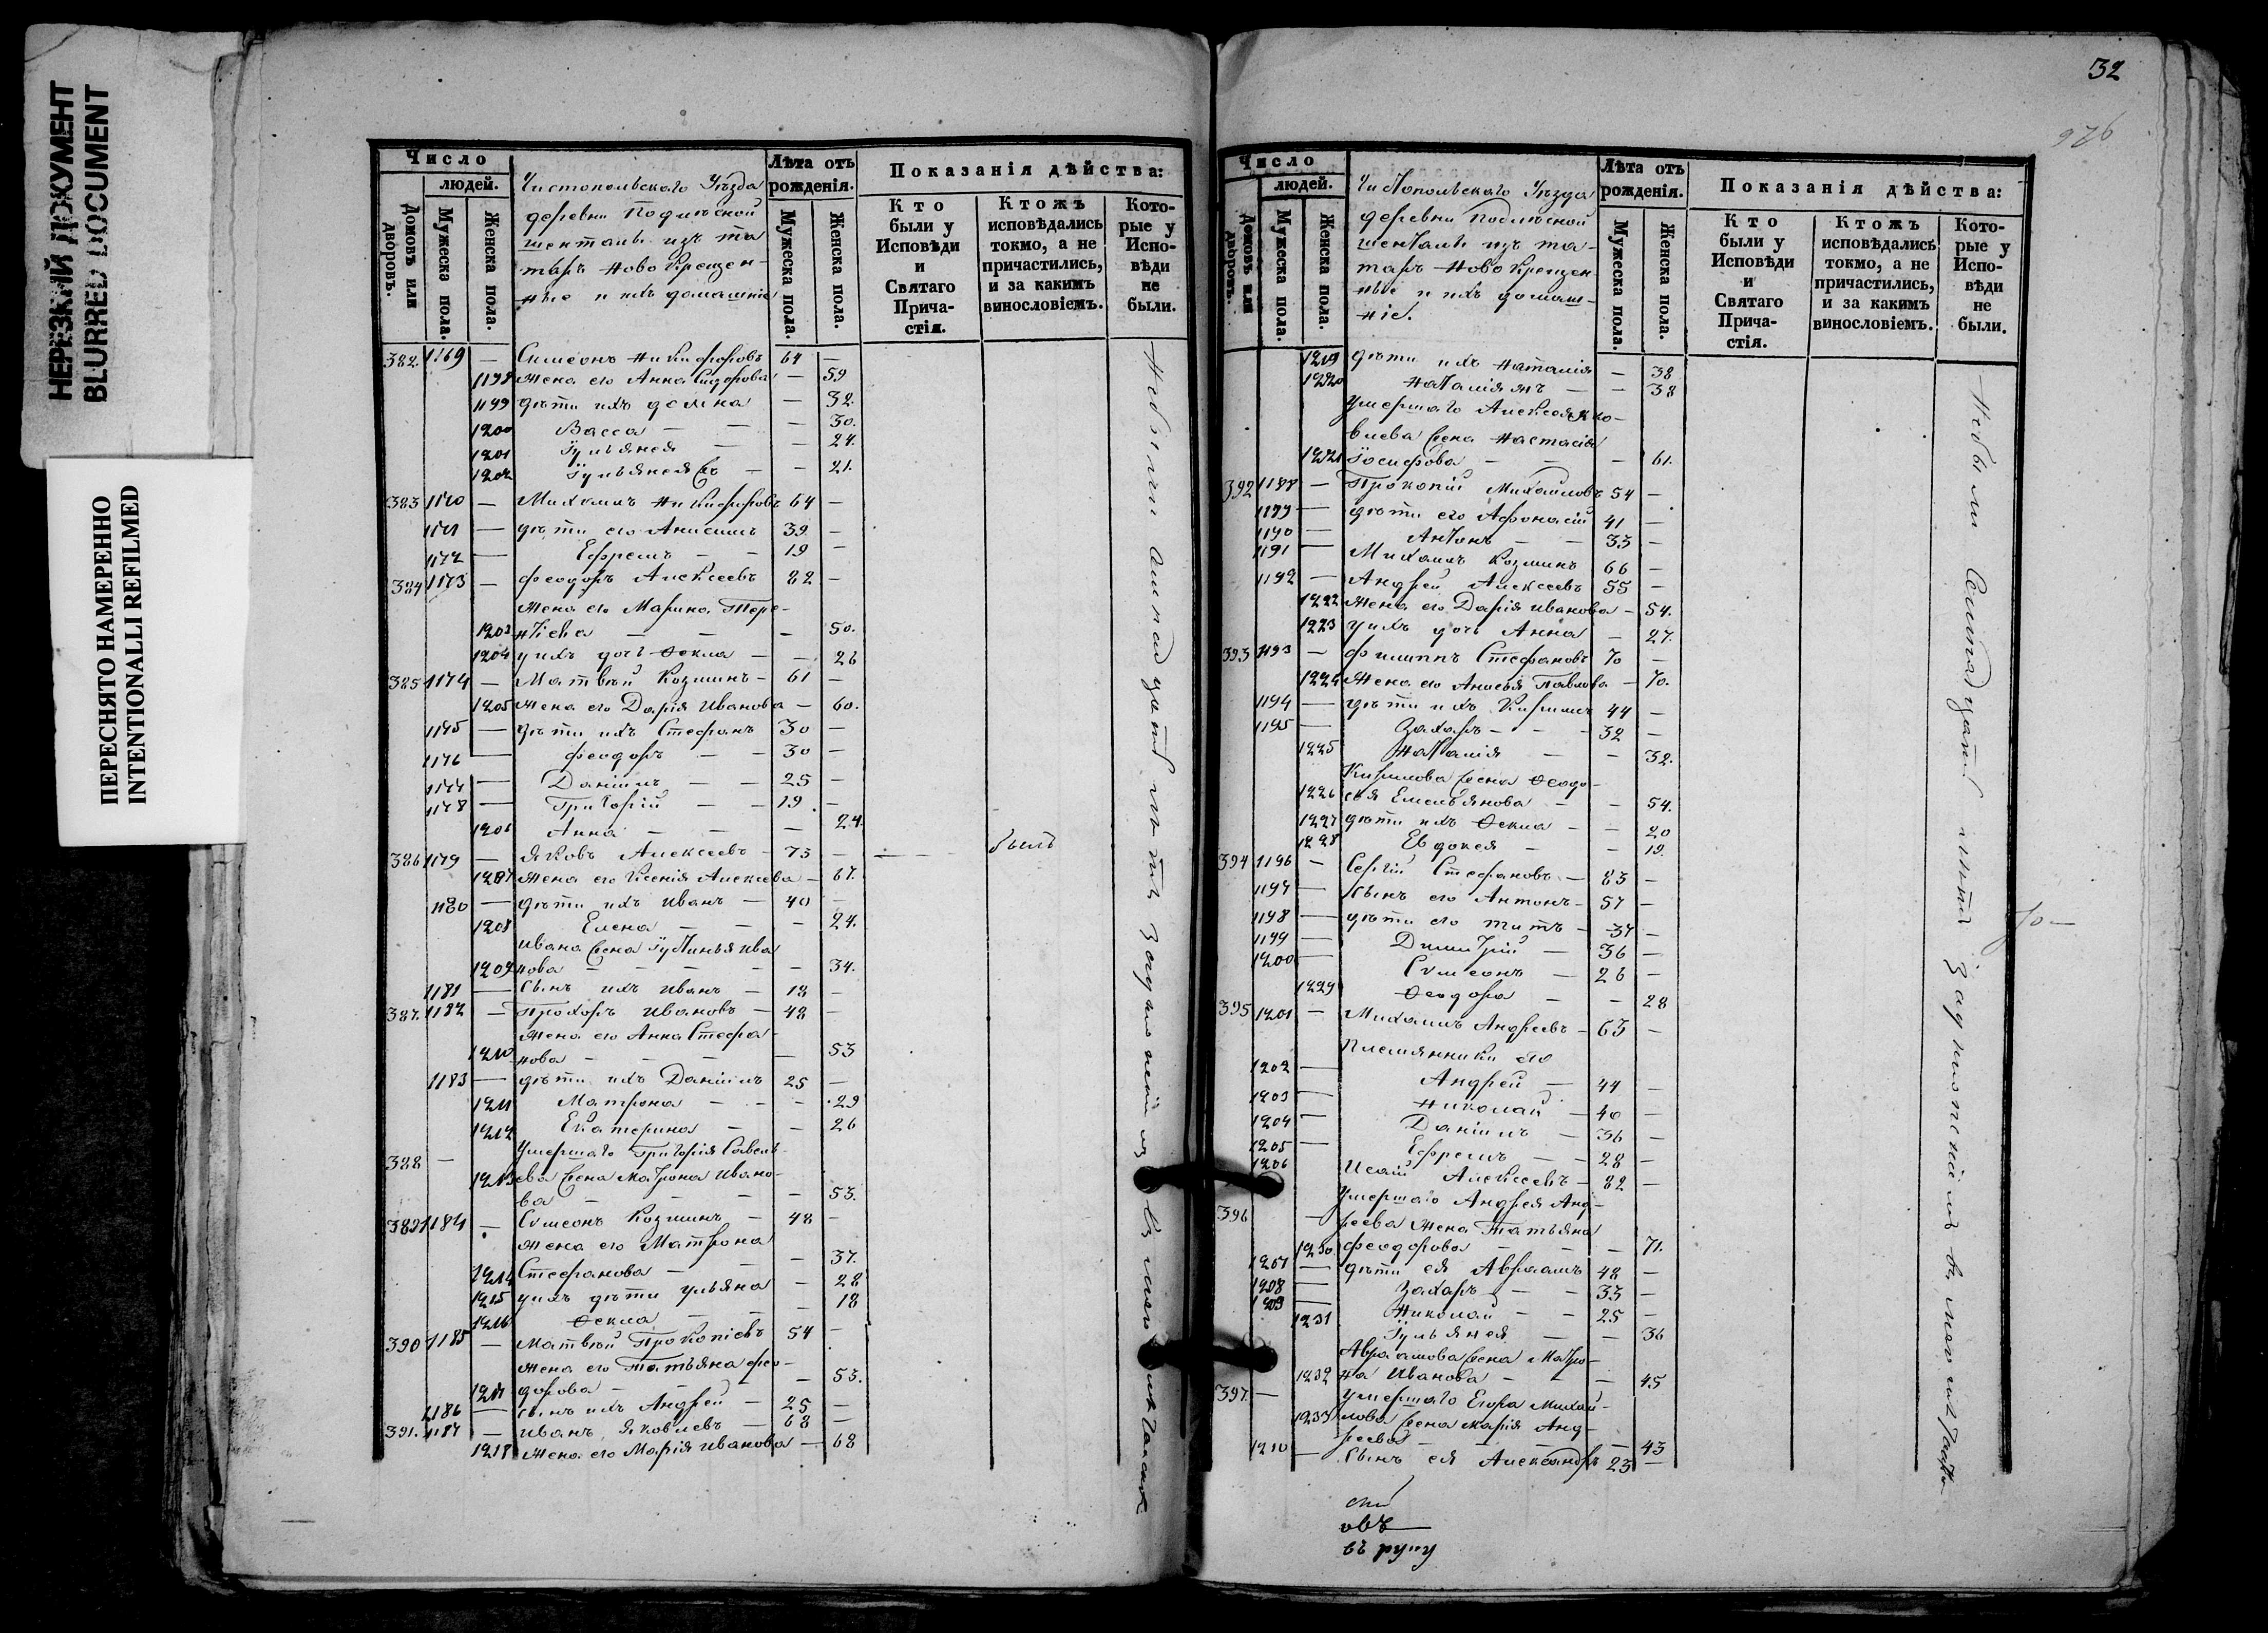 НЕРЕЗКИЙ ДОКУМЕНТ
BLURRED DOCUMENT
ПЕРЕСНЯТО НАМЕРЕННО
INTENTIONALLI REFILMED
Число
людей.
Домовъ или дворовъ.
Мужеска пола.
Женска пола.
Чистопольскаго Уѣзда
деревни Подлѣсной
шентали изъ та
таръ Ново Крещен-
ные и ихъ домашніе
Лѣта отъ рожденія.
Мужеска пола.
Женска пола.
Показанія дѣйства:
Кто были у Исповѣди и Святаго Прича-стія.
Ктожъ исповѣдались токмо, а не причастились, и за какимъ винословіемъ.
Кото-рые у Испо-вѣди не были.
382. 1169 — Симеонъ Никифоровъ 64 —
1198 жена его Анна Сидорова — 59
1199 дѣти ихъ Домна — 32.
1200 Васса — — — 30.
1201 Іульянея — — 24.
1202 Іульянея — — 21.
383 1170 — Михаилъ Никифоровъ 64 —
1171 — дѣти его Анисимъ 39 —
1172 — Ефремъ — — 19 —
384 1173 — Феодоръ Алексеевъ 82 —
жена его Марина Тере-
1203 нтіева — — — 50.
1204 у ихъ дочь Ѳекла — — 26
385 1174 — Матвѣй Козминъ — 61 —
1205 жена его Дарія Иванова — 60.
1175 — дѣти ихъ Стефанъ 30 —
1176 — Феодоръ — — 30 —
1177 — Даніилъ — — 25 —
1178 — Григорій — — 19. —
1206 Анна — — — 24.
386 1179 — Яковъ Алексеевъ — 75 — былъ
1207 жена его Ксенія Алексеева — 67.
1180 — дѣти ихъ Иванъ — 40 —
1208 Елена — — — 24.
Ивана жена Устинья Ива
1209 нова — — — — 34.
1181 — Сынъ ихъ Иванъ — 18 —
387. 1182 — Прохоръ Ивановъ — 48 —
жена его Анна Стефа-
1210 нова — — — — 53
1183 — дѣти ихъ Даніилъ 25 —
1211 Матрона — — — 29
1212 Екатерина — — 26
388 — Умершаго Григорія Савель-
1213 ева жена Матрона Ивано-
ва — — — — 53.
389 1184 — Симеонъ Козминъ — 48 —
жена его Матрона
1214 Стефанова — — — 37.
1215 у ихъ дѣти Ульяна — 28
1216 Ѳекла — — — 18
390 1185 — Матвѣй Прокопіевъ 54 —
жена его Татьяна фео-
1217 дорова — — — — 53.
1186 — сынъ ихъ Андрей — 25 —
391. 1187 — Иванъ Яковлевъ — 68 —
1218 жена его Марія Иванова — 68
32
976
Число
людей.
Домовъ или дворовъ.
Мужеска пола.
Женска пола.
Чистопольскаго Уѣзда
деревни Подлѣсной
шентали изъ та-
таръ Ново Крещен-
ные и ихъ домаш-
ніе.
Лѣта отъ рожденія.
Мужеска пола.
Женска пола.
Показанія дѣйства:
Кто были у Исповѣди и Святаго Прича-стія.
Ктожъ исповѣдались токмо, а не причастились, и за какимъ винословіемъ.
Кото-рые у Испо-вѣди не были.
1219 дѣти ихъ Наталія — 38
1220 Наталія жъ — — 38
Умершаго Алексея Яко-
влева жена Настасія
1221 Іосифова — — — 61.
392 1188 — Прокопій Михайловъ 54 —
1189 — дѣти его Афонасій 41 —
1190 — Антонъ — — 33 —
1191 Михаилъ Козминъ 66 —
1192 — Андрей Алексеевъ 55 —
1222 жена его Дарія Иванова — 54.
1223 у ихъ дочь Анна — 27.
393 1193 — Филиппъ Стефановъ 70 —
1224 жена его Анисья Павлова — 70.
1194 — дѣти ихъ Кирилъ 44 —
1195 — Захаръ — — 32 —
1225 Наталія — — 32.
Кирилова жена Ѳеодо-
1226 сья Емельянова — — 54.
1227 дѣти ихъ Ѳекла — — 20
1228 Евдокея — — 19.
394 1196 — Сергій Стефановъ — 83 —
1197 — Сынъ его Антонъ — 57 —
1198 — дѣти его Титъ — 37 —
1199 — Димитрій — 36 —
1200 — Симеонъ — 26 —
1229 Ѳеодора — — 28
395 1201 — Михаилъ Андреевъ — 63 —
Племянники его
1202 — Андрей — 44 —
1203 — Николай — 40 —
1204 — Даніилъ — 36 —
1205 — Ефремъ — — 28 —
1206 Исаій Алексеевъ — 82 —
396 — Умершаго Андрея Анд-
реева жена Татьяна
1230. феодорова — — — 71.
1207 — дѣти ея Авраамъ 48 —
1208 — Захаръ — — 33 —
1209 — Николай — — 25 —
1231 Іульянея — — 36
Авраамова жена Матро-
1232 на Иванова — — — 45
397. — Умершаго Егора Михай-
1233 лова жена Марія Анд-
реева — — — — 43
1210 — Сынъ ея Александръ 23 —
овъ
въ руну